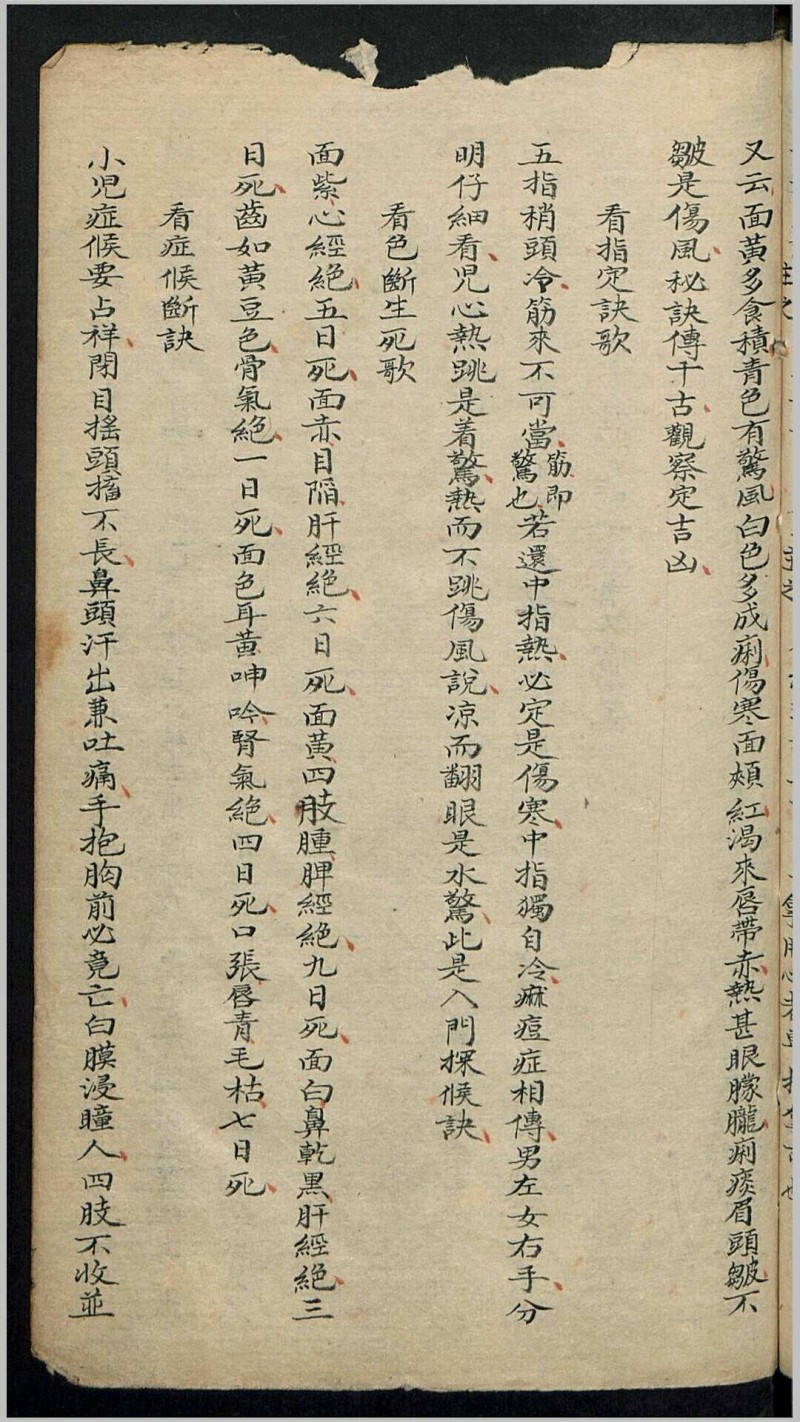 又云面黃多食積青色有驚風白色多成痢傷寒面頰紅渴來唇帶赤熱甚眼朦朧痢痰眉頭皺不
皺是傷風秘訣傳千古觀察定吉凶
看指定訣歌
五指稍頭冷筋來不可當筋即驚也若還中指熱必定是傷寒中指獨自冷麻痘症相傳男左女右手分
明仔細看兒心熱跳是着驚熱而不跳傷風說凉而翻眼是水驚此是入門探候訣
看色斷生死歌
面紫心經絕五日死面赤目陷肝經絕六日死面黃四肢腫脾經絕九日死面白鼻乾黑肝經絕三
日死齒如黃豆色骨氣絕一日死面色耳黃呻吟腎氣絕四日死口張唇青毛枯七日死
看症候斷訣
小兒症候要占祥閉目搖頭搐不長鼻頭汗出兼吐痛手抱胸前必竟亡白膜浸瞳人四肢不收並